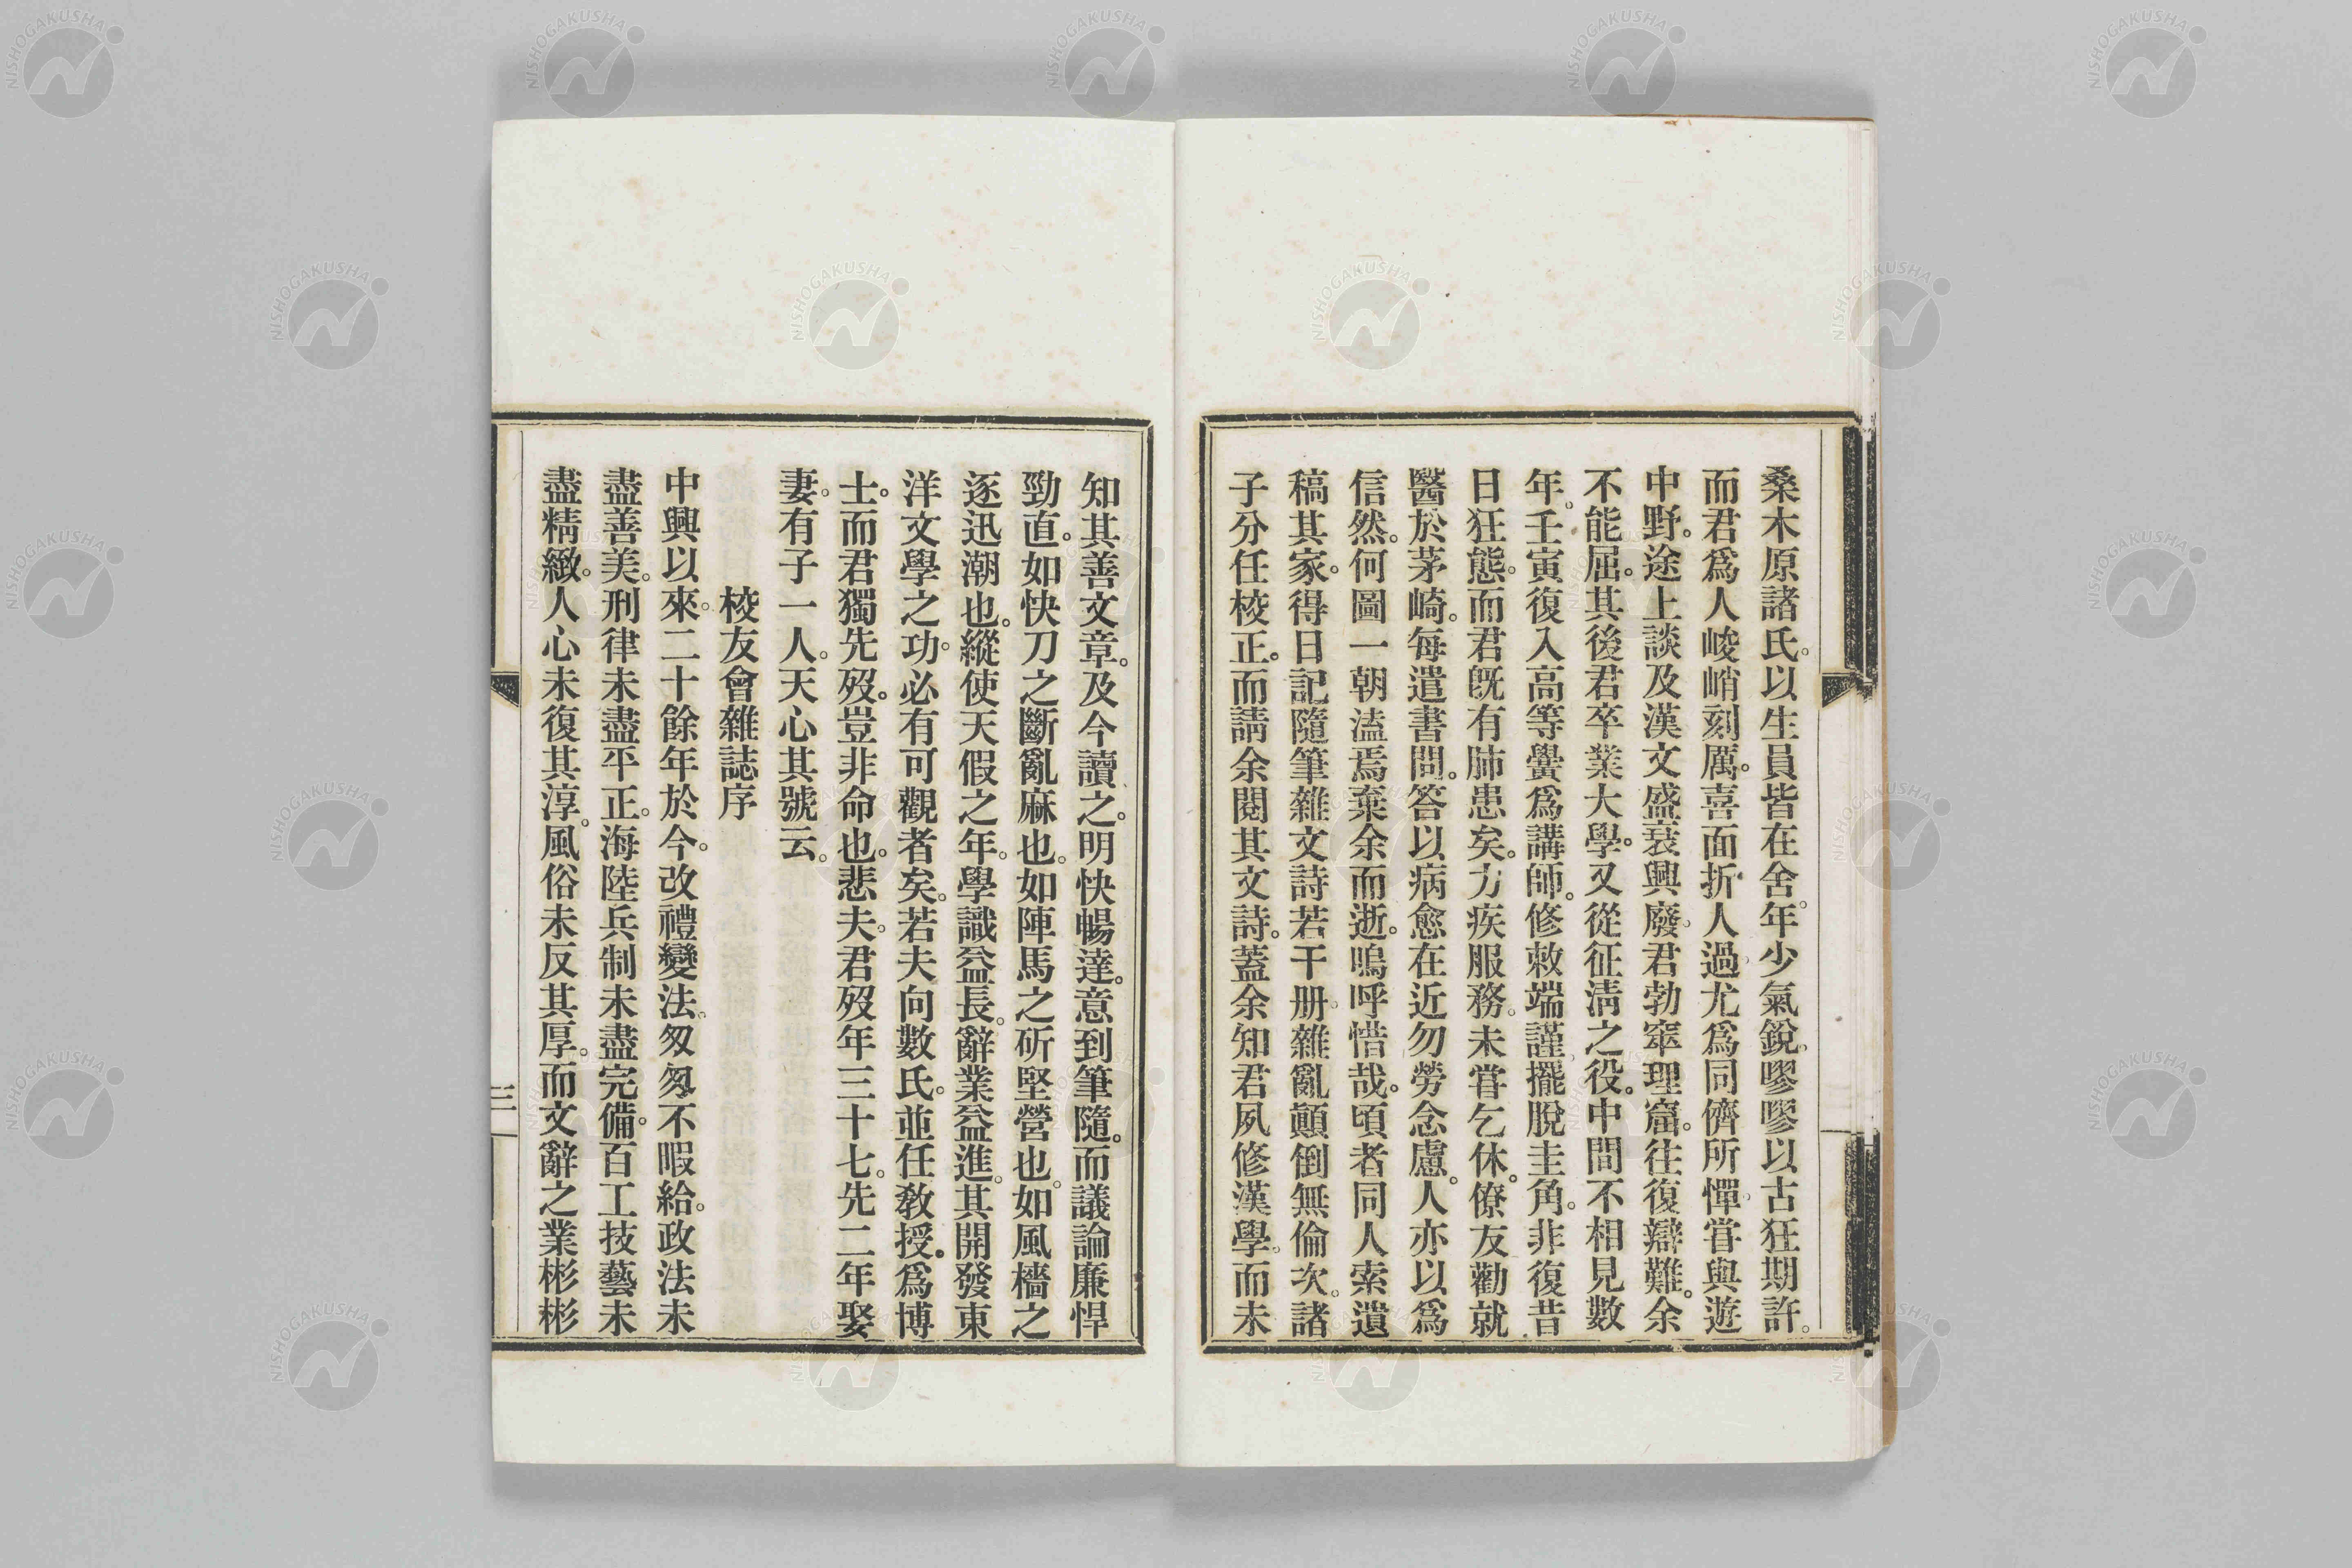 桑木原諸氏。以生員皆在舍。年少氣銳。嘐嘐以古狂期許。
而君爲人峻峭刻厲。喜面折人過。尤爲同儕所憚。甞與遊
中野。途上談及漢文盛衰興廢。君勃窣理窟。往復辯難。余
不能屈。其後君卒業大學。又從征淸之役。中間不相見數
年。壬寅復入高等黌爲講師。修敕端謹。擺脫圭角。非復昔
日狂態。而君旣有肺患矣。力疾服務。未甞乞休。僚友勸就
醫於茅崎。每遣書問。答以病愈在近勿勞念慮。人亦以爲
信然。何圖一朝溘焉棄余而逝。嗚呼惜哉。頃者同人索遺
稿其家。得日記隨筆雜文詩若干册。雜亂顚倒無倫次。諸
子分任校正。而請余閱其文詩。蓋余知君夙修漢學。而未
知其善文章。及今讀之。明快暢達。意到筆隨。而議論廉悍
勁直。如快刀之斷亂麻也。如陣馬之斫堅營也。如風檣之
逐迅潮也。縱使天假之年。學識益長。辭業益進。其開發東
洋文學之功。必有可觀者矣。若夫向數氏。並任敎授。爲博
士。而君獨先歿。豈非命也。悲夫。君歿年三十七。先二年娶
妻。有子一人。天心其號云。
校友會雜誌序
中興以來。二十餘年於今。改禮變法。匆匆不暇給。政法未
盡善美。刑律未盡平正。海陸兵制未盡完備。百工技藝未
盡精緻。人心未復其淳。風俗未反其厚。而文辭之業彬彬
三
NISHOGAKUSHA